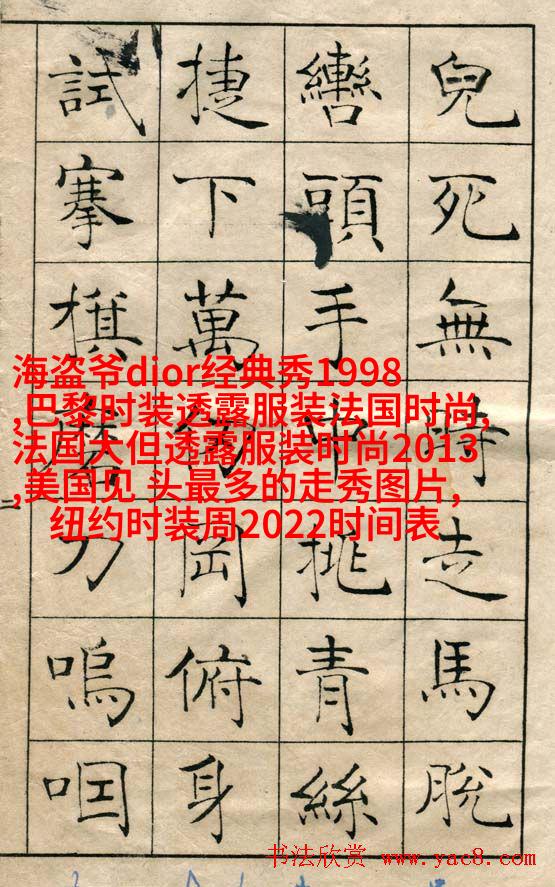 兒死無時走馬脫
轡頭手中挑青絲
捷下萬仞岡俯身
試搴旗磨刀嗚咽
海盗爷dior经典秀1998
,巴黎时装透露服装法国时尚,
法国大但透露服装时尚2013
,美国见 头最多的走秀图片,
纽约时装周2022时间表
书法欣赏 www.yac8.com